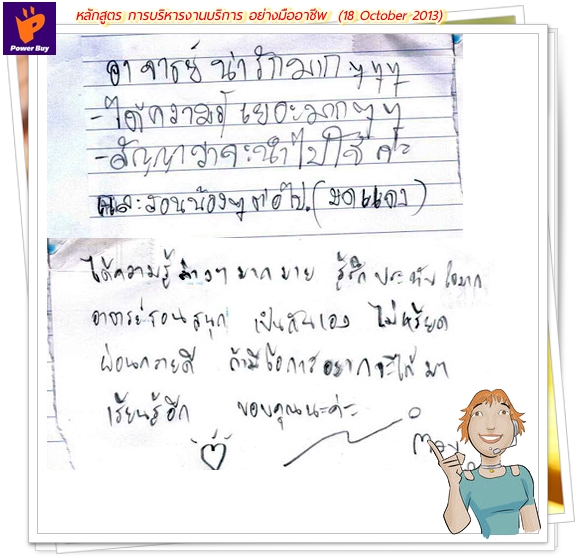 หลักสูตร การบริหารงานบริการ อย่างมืออาชีพ (18 October 2013)
Power Buy
อาจารย์น่ารักมาก ๆๆๆ
- ได้ความรู้เยอะมากๆๆ
- สัญญาว่าจะนำไปใช้ค่ะ
และสอนน้องๆต่อไป. (มดแดง)
ได้ความรู้ต่างๆมากมาย รู้สึกประทับใจมาก
อาจารย์สอนสนุก เป็นกันเอง ไม่เครียด
ผ่อนคลายดี ถ้ามีโอกาสอยากจะได้มา
เรียนรู้อีก ขอบคุณนะค่ะ